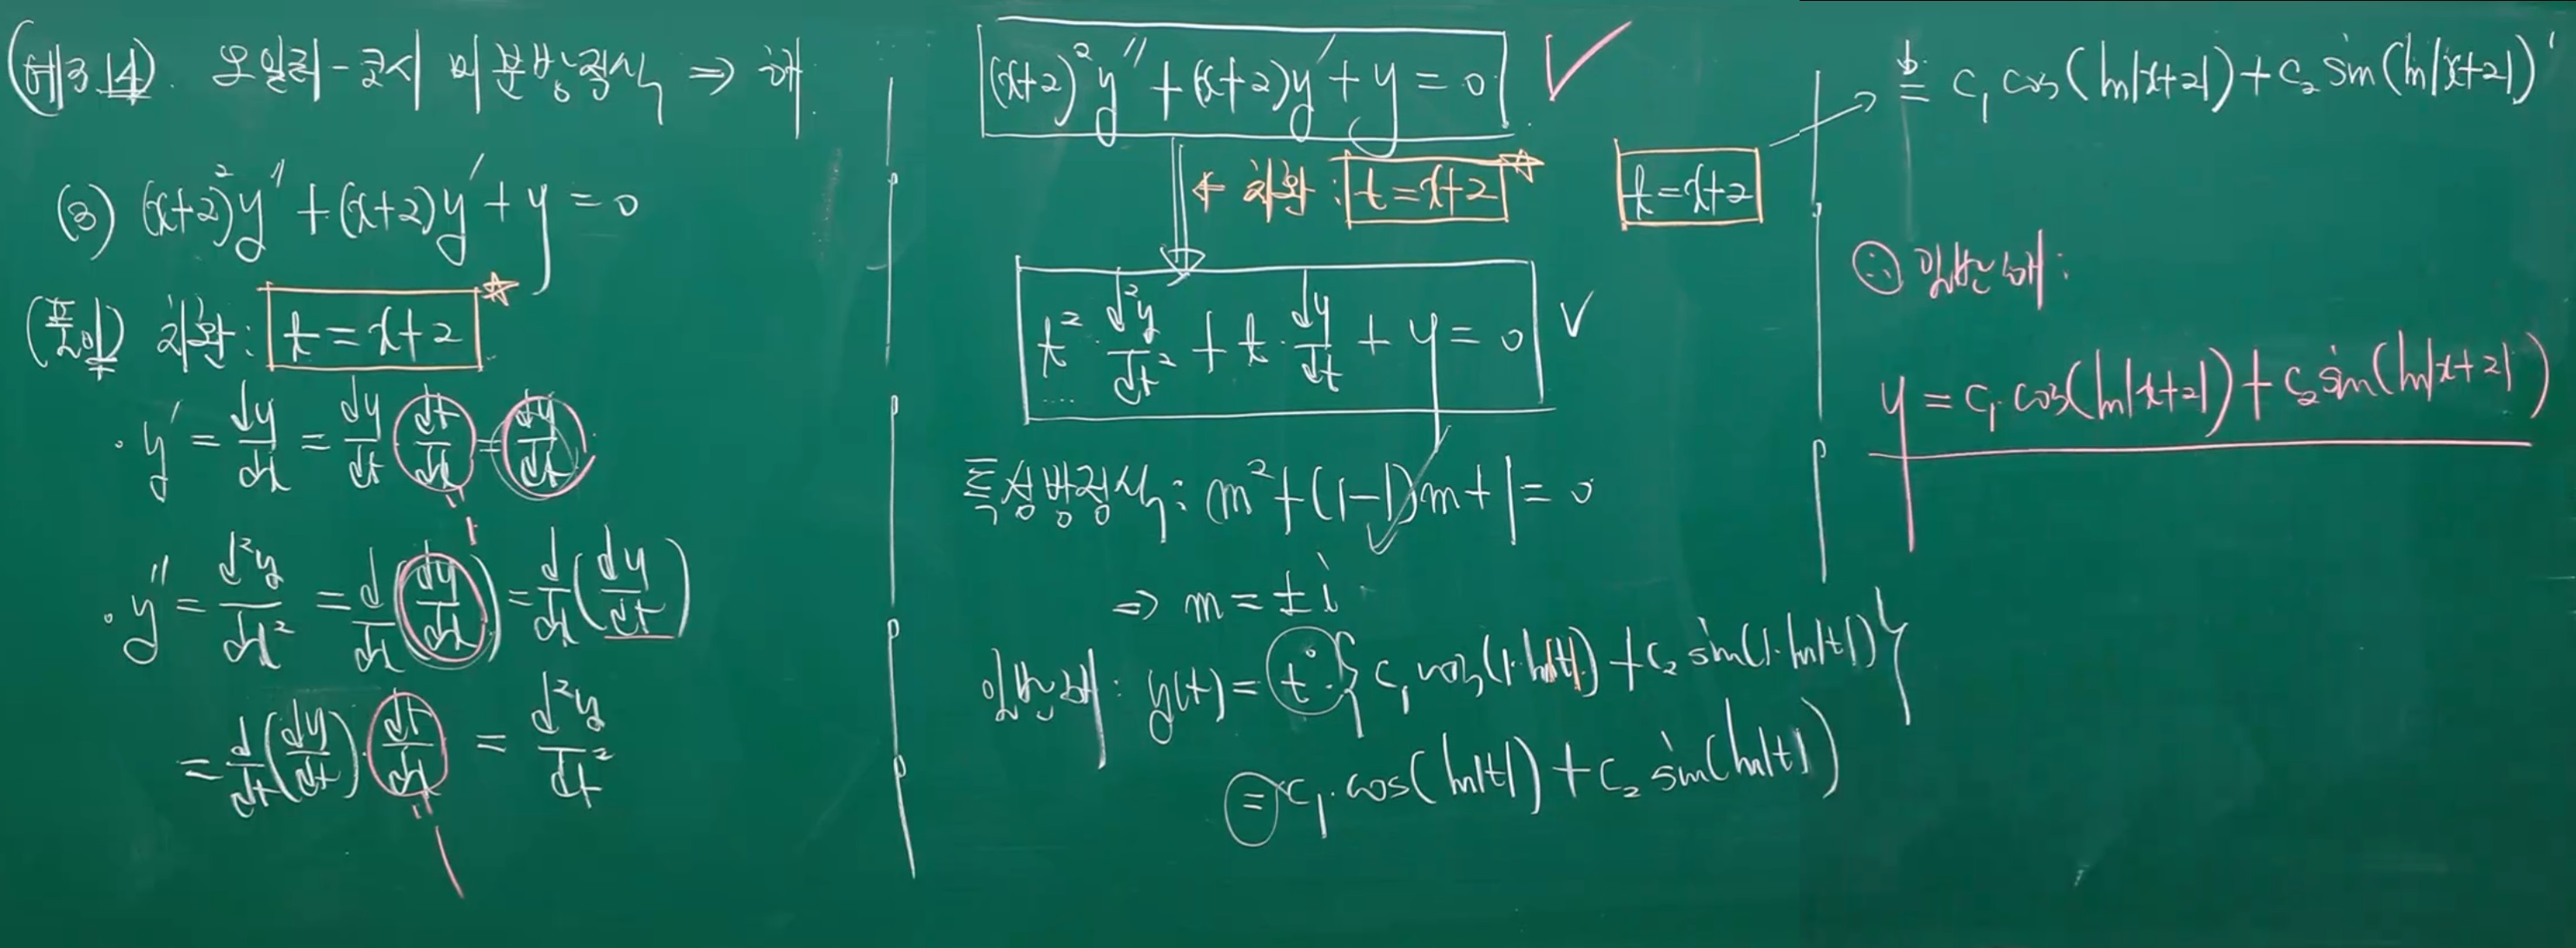 (예 3.14). 오일러-코시 미분방정식 ⇒ 해
(3) (x+2)²y″ + (x+2)y′ + y = 0
(풀이) 치환: t = x+2 ☆
· y′ = dy/dx = dy/dt dt/dx = dy/dt
″
1
· y″ = d²y/dx² = d/dx(dy/dx) = d/dx(dy/dt)
= d/dt(dy/dt)·dt/dx = d²y/dt²
″
1
(x+2)²y″ + (x+2)y′ + y = 0 ✓
← 치환: t = x+2 ☆
t²·d²y/dt² + t·dy/dt + y = 0 ✓
특성방정식: m² + (1-1)m + 1 = 0
⇒ m = ±i
일반해: y(t) = t⁰·{c₁cos(1·ln|t|) + c₂sin(1·ln|t|)}
= c₁·cos(ln|t|) + c₂sin(ln|t|)
t = x+2
= c₁cos(ln|x+2|) + c₂sin(ln|x+2|)
∴ 일반해:
y = c₁·cos(ln|x+2|) + c₂sin(ln|x+2|)